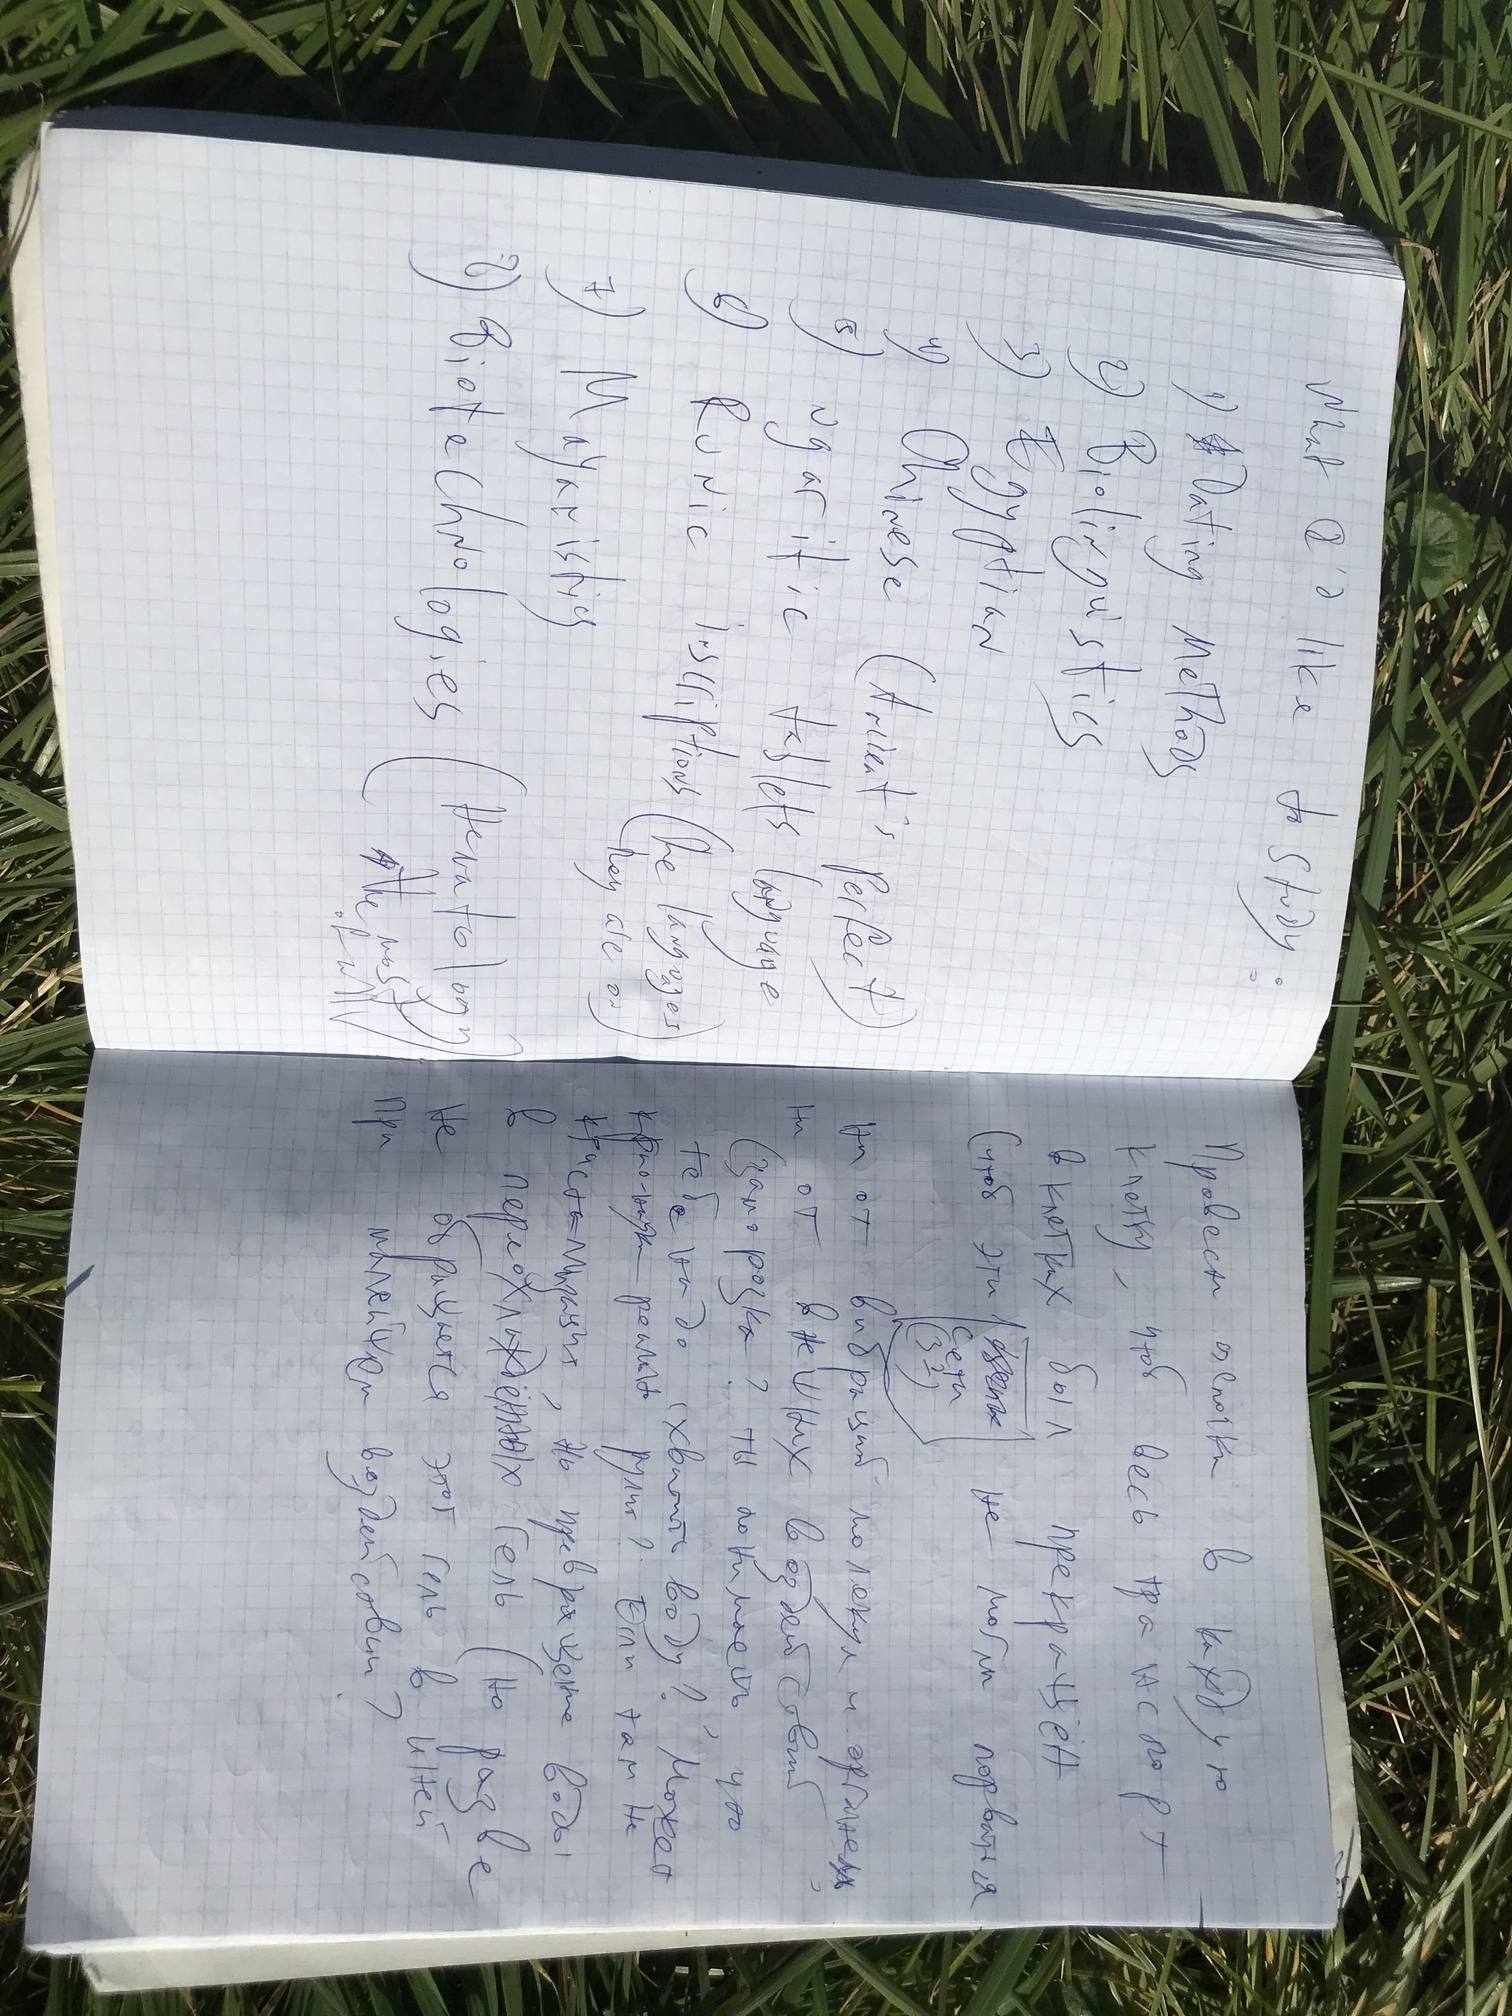 What I'd like to study:
1) Dating Methods
2) Biolinguistics
3) Egyptian
4) Chinese (Ancient's perfect)
5) Ugaritic tablets language
6) Runic inscriptions (the languages
they are on)
7) Mayanistics
8) Biotechnologies (Hematology?
the most)
Провести в каждую
клетку, чтоб весь транспорт
в клетках был прекращён
(чтоб эти
сети
не могли порваться
ни от вибраций молекул и органелл,
ни от внешних воздействий
(заморозка? ты понимаешь, что
тебе надо схватить воду?, Может
крио-нидж реально рулит? Если там не
кристаллизация, но превращение воды
в переохлаждённых гель (но разве
не обращается этот гель в иней
при малейшем воздействии?